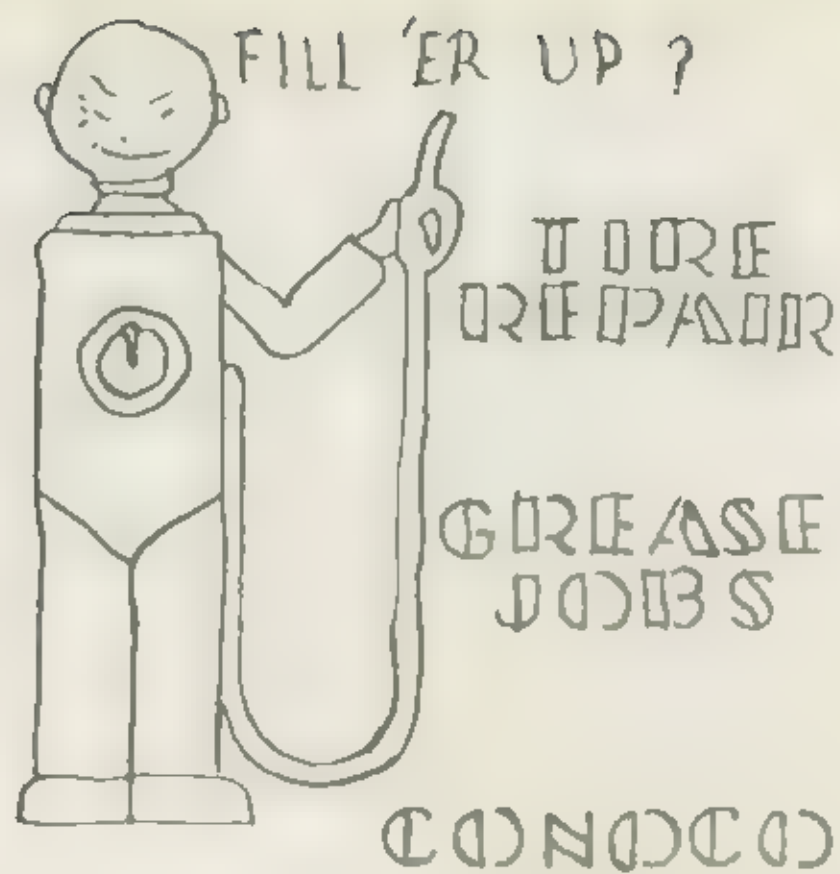 FILL 'ER UP ?
TIRE
REPAIR
GREASE
JOBS
CONOCO